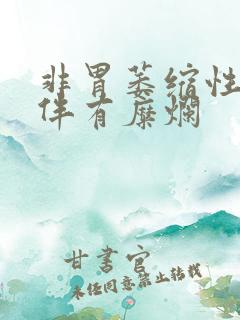 非胃萎缩性
伴有糜烂
甘书官
未经同意禁止转载